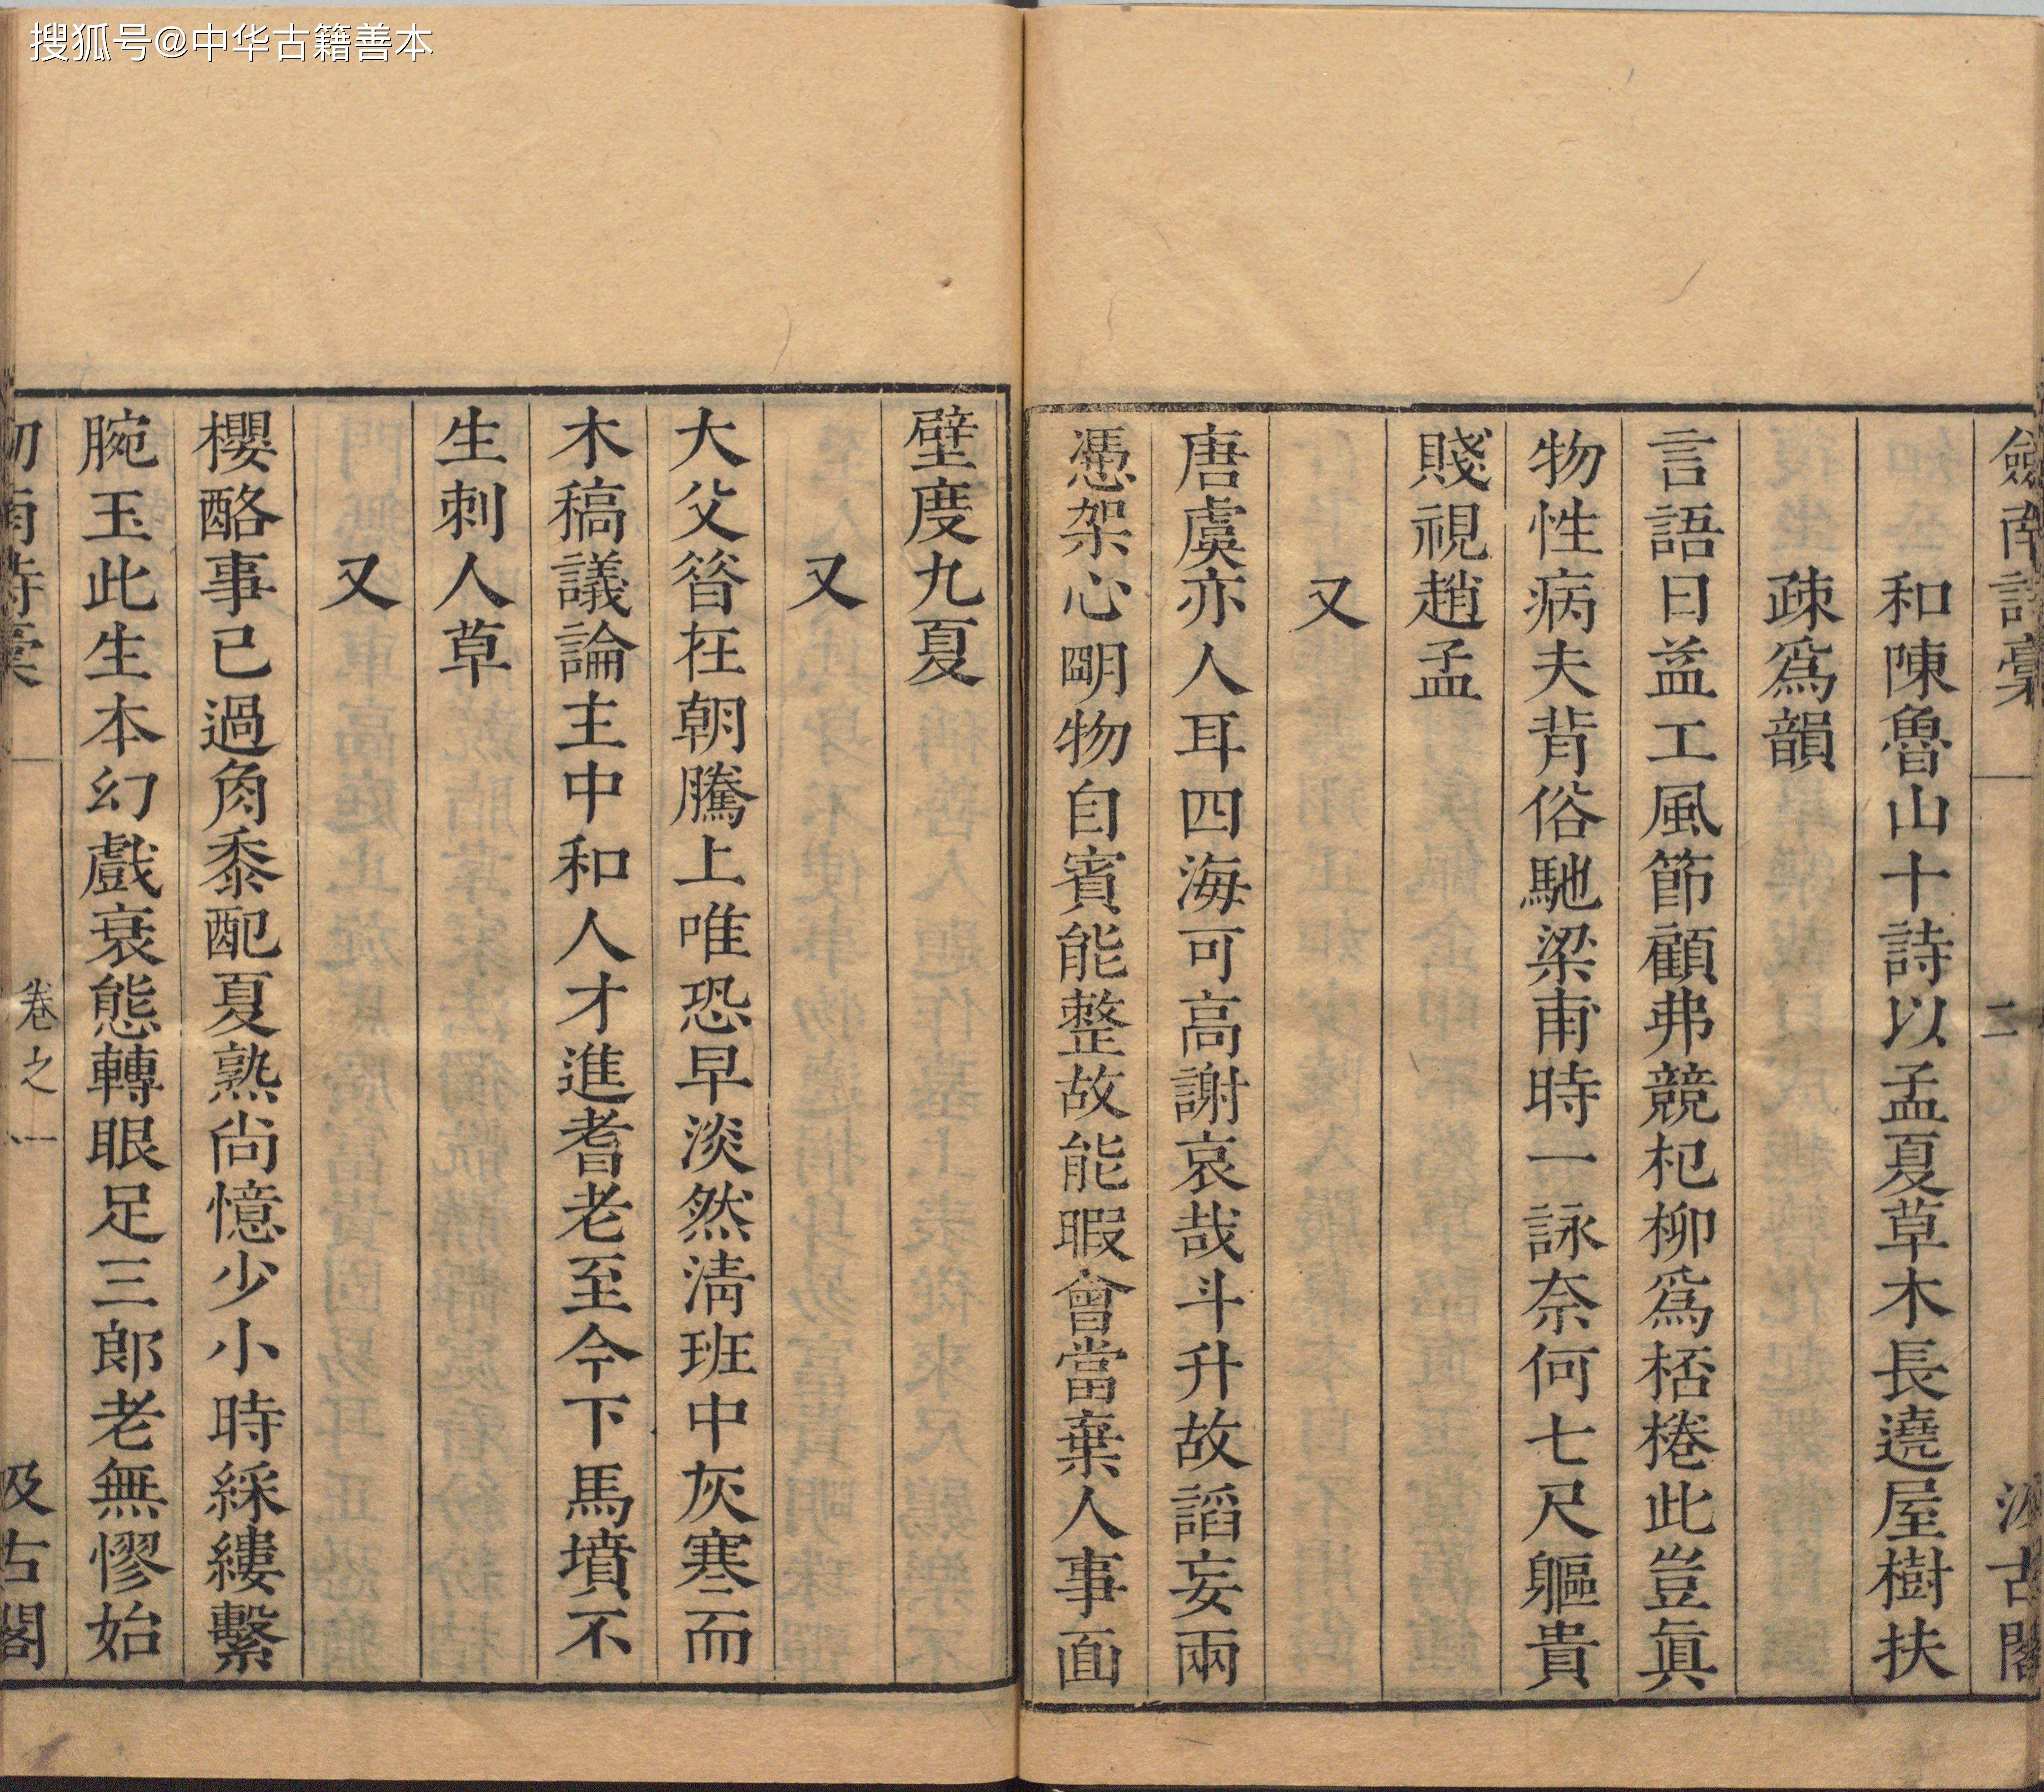 搜狐号@中华古籍善本
劔南詩稾 二 汲古閣
和陳魯山十詩以孟夏草木長遶屋樹扶
疎爲韻
言語日益工風節顧弗競杞柳爲桮棬此豈眞
物性病夫背俗馳梁甫時一詠奈何七尺軀貴
賤視趙孟
又
唐虞亦人耳四海可高謝哀哉斗升故謟妄兩
憑架心朙物自賓能整故能暇會當棄人事面
壁度九夏
又
大父昝在朝騰上唯恐早淡然淸班中灰寒而
木稿議論主中和人才進耆老至今下馬墳不
生刺人草
又
櫻酪事已過角黍配夏熟尙憶少小時綵縷繫
腕玉此生本幻戲衰態轉眼足三郎老無憀始
劔南詩稾 卷之一 汲古閣